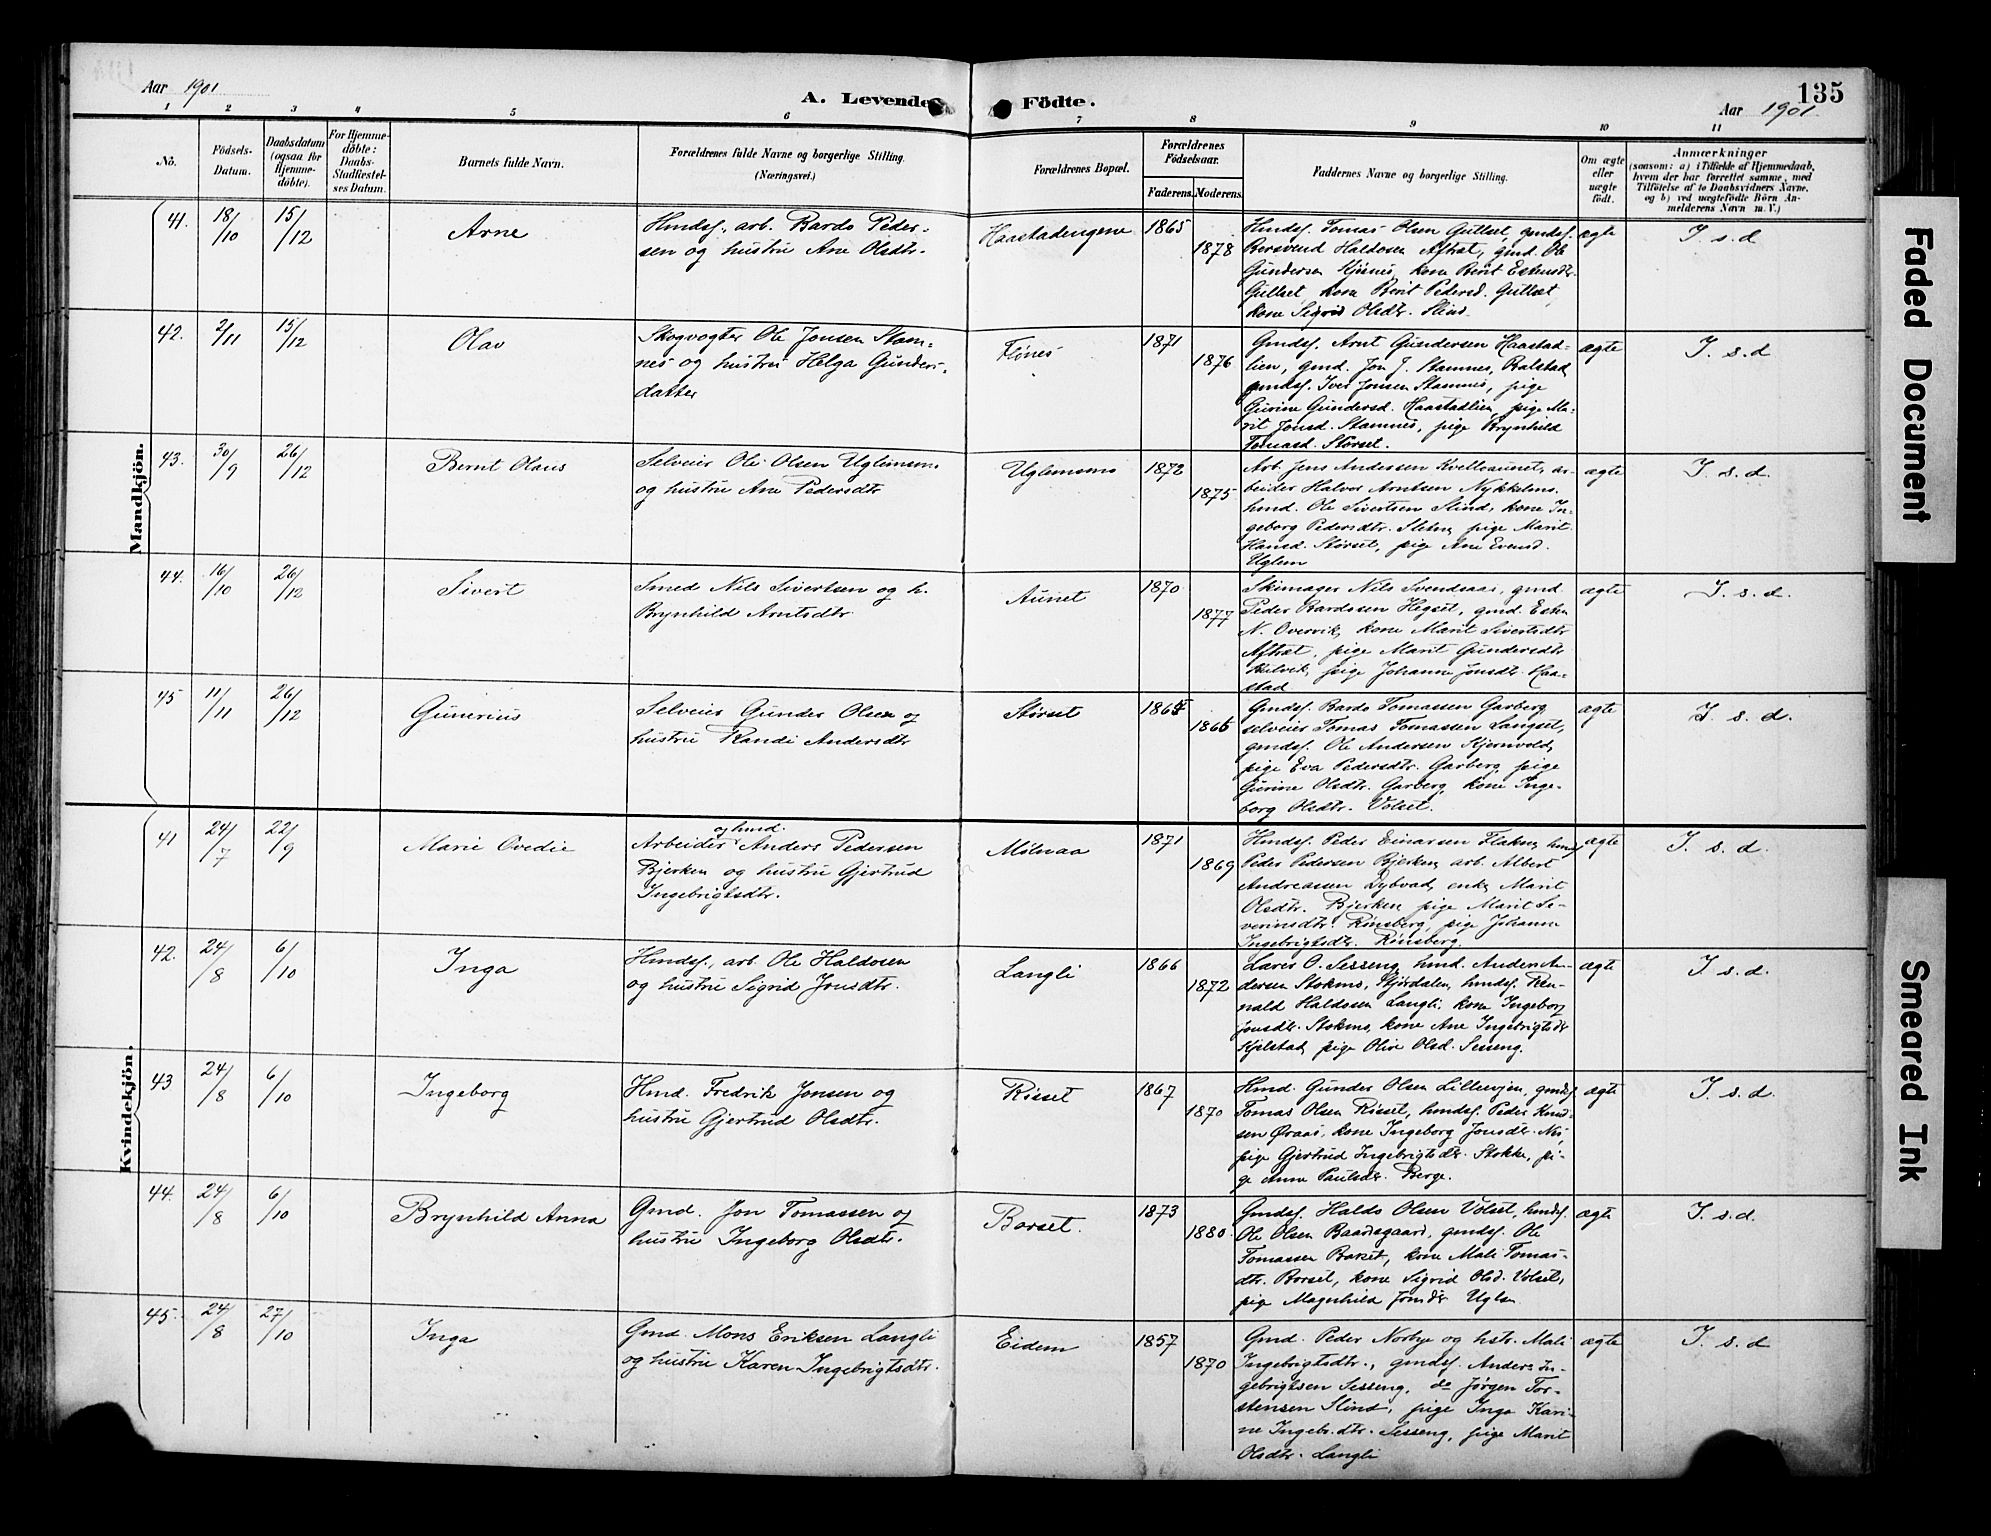 Aar 1901
A. Levende Födte.
135
Aar 1901
1 2 3 4 5 6 7 8 9 10 11
No.
Födsels-Datum.
Daabsdatum (ogsaa for Hjemme-döbte).
For Hjemme-döbte: Daabs-Stadfæstel-ses Datum.
Barnets fulde Navn.
Forældrenes fulde Navne og borgerlige Stilling.
(Næringsvei.)
Forældrenes Bopæl.
Forældrenes Födselsaar.
Faderens. Moderens.
Faddernes Navne og borgerlige Stilling.
Om ægte eller uægte födt.
Anmærkninger
(saasom: a) i Tilfælde af Hjemmedaab,
hvem der har forrettet samme, med
Tilföielse af to Daabsvidners Navne.
og b) ved uægtefödte Börn An-
melderens Navn m. V.)
Mandkjön.
41. 18/10 15/12 Arne
Hmdsf. arb. Bardo Peder-
sen og hustru Ane Olsdtr.
Haastadengene 1865 1878
Hmdsf. Tomas Olsen Gullset, gmdsf.
Bersvend Haldosen Aftret, gmd. Ole
Gundersen Kjøsnes, kone Berit Estensdtr.
Gullset, kone Berit Pedersd. Gullset,
kone Sigrid Olsdtr. Slind.
ægte I. s. d
42. 2/11 15/12 Olav
Skogvogter Ole Jonsen Stam-
nes og hustru Helga Gunders-
datter
Flønes 1871 1876
Gmdsf. Arnt Gundersen Haastad-
lien, gmd. Jon J. Stamnes, Balstad,
gmdsf. Iver Jonsen Stamnes, pige
Gurine Gundersd. Haastadlien, pige Ma-
rit Jonsd. Stamnes, pige Brynhild
Tomasd. Størset.
ægte I. s. d
43. 30/9 26/12 Bernt Olaus
Selveier Ole Olsen Uglemsmo
og hustru Ane Pedersdtr
Uglemsmo 1872 1875
Arb. Jens Andersen Kvelloaunet, ar-
beider Halvor Arntsen Nykkelmo,
hmd. Ole Sivertsen Slind, kone In-
geborg Pedersdtr. Sletne, pige Marit
Hansd. Størset, pige Ane Evensd.
Uglem
ægte I. s. d.
44. 16/10 26/12 Sivert
Smed Nils Sivertsen og h.
Brynhild Arntsdtr.
Aunet 1870 1877
Skimager Nils Svendsaas, gmd.
Peder Bardosen Hegset, gmd. Esten
N. Overvik, kone Marit Sivertsdtr
Aftret, pige Marit Gundersdtr
Selvik, pige Johanna Jonsdtr. Haa-
stad
ægte I. s. d.
45 11/11 26/12 Gunerius
Selveier Gunder Olsen og
hustru Randi Andersdtr
Størset
Gmdsf. Bardo Tomassen Garberg
selveier Tomas Tomassen Langset,
gmdsf. Ole Andersen Kjernvold,
pige Eva Pedersdtr. Garberg, pige
Gurine Olsdtr. Garberg, kone Inge-
borg Olsdtr. Volset.
ægte I. s. d.
Kvindekjön.
41 24/7 22/9 Marie Ovedie
og hmd.
Arbeider Anders Pedersen
Bjerken og hustru Gjertrud
Ingebrigtsdtr.
Mølnaa 1871 1869
Hmdsf. Peder Einarsen Flaknes, hmdsf.
Peder Pedersen Bjerken, arb. Albert
Andreassen Dybvad, enke Marit
Olsdtr. Bjerken, pige Marit Se-
verinsdtr. Rønsberg, pige Johanna
Ingebrigtsdtr. Rønsberg.
ægte I. s. d.
42. 24/8 6/10 Inga
Hmdsf., arb. Ole Haldosen
og hustru Sigrid Jonsdtr.
Langli 1866 1872
Lærer O. Sesseng, hmd. Anders An-
dersen Stokmo, Stjørdalen, hmdsf. Ren-
nald Haldosen Langli, kone Ingeborg
Jonsdtr. Stokmo, kone Ane Ingebrigtsdtr
Kjelstad, pige Olive Olsd. Sesseng.
ægte I. s. d.
43 24/8 6/10 Ingeborg
Hmd. Fredrik Jonsen og
hustru Gjertrud Olsdtr.
Risset 1867 1870
Hmd. Gunder Olsen Lilleevjen, gmdsf.
Tomas Olsen Risset, hmdsf. Peder Knud-
sen Øraas, kone Ingeborg Jonsdtr. Nes,
pige Gjertrud Ingebrigtsdtr. Stokke, pi-
ge Anne Paulsdtr. Berge.
ægte I. s. d.
44. 24/8 6/10 Brynhild Anna
Gmd. Jon Tomassen og
hustru Ingeborg Olsdtr.
Borset. 1873 1880.
Gmdsf. Haldo Olsen Volset, hmdsf.
Ole Olsen Baardsgaard, gmdsf. Ole
Tomassen Borset, kone Mali Tomas-
dtr. Borset, kone Sigrid Olsd. Volset,
pige Magnhild Jonsdtr Uglem
ægte I. s. d.
45. 24/8 27/10 Inga
Gmd. Mons Eriksen Langli
og hustru Karen Ingebrigtsdtr.
Eidem 1857 1870
Gmd. Peder Norbye og hstr. Mali
Ingebrigtsdtr., gmdsf. Anders In-
gebrigtsen Sesseng, do Jørgen Tor-
stensen Slind, pige Inga Kari-
ne Ingebr.dtr. Sesseng, pige Marit
Olsdtr. Langli
ægte I. s. d
Faded Document
Smeared Ink